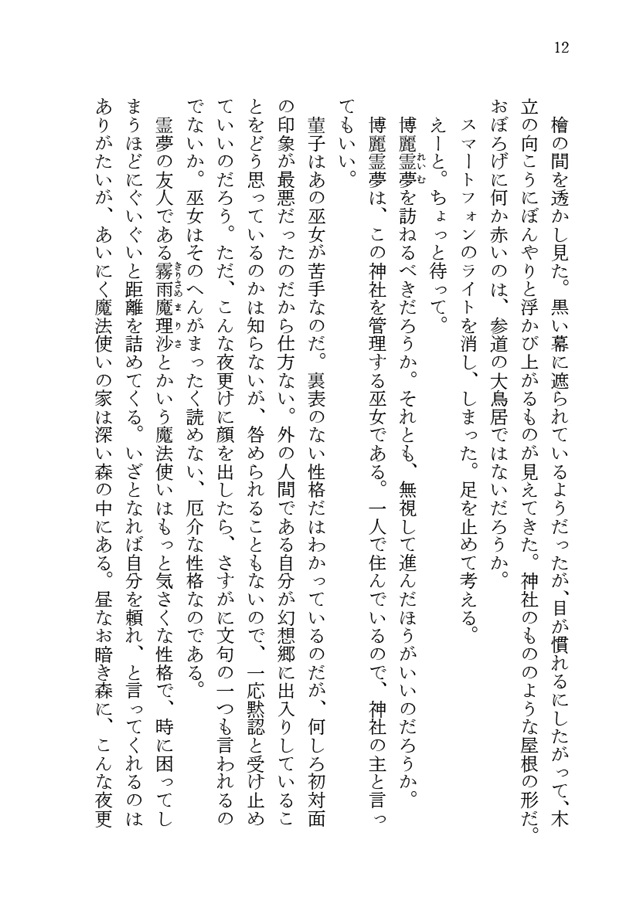 12
檜の間を透かし見た。黒い幕に遮られているようだったが、目が慣れるにしたがって、木
立の向こうにぼんやりと浮かび上がるものが見えてきた。神社のもののような屋根の形だ。
おぼろげに何か赤いのは、参道の大鳥居ではないだろうか。
スマートフォンのライトを消し、しまった。足を止めて考える。
えーと。ちょっと待って。
博麗霊夢を訪ねるべきだろうか。それとも、無視して進んだほうがいいのだろうか。
れいむ
博麗霊夢は、この神社を管理する巫女である。一人で住んでいるので、神社の主と言っ
てもいい。
菫子はあの巫女が苦手なのだ。裏表のない性格だはわかっているのだが、何しろ初対面
の印象が最悪だったのだから仕方ない。外の人間である自分が幻想郷に出入りしているこ
とをどう思っているのかは知らないが、咎められることもないので、一応黙認と受け止め
ていいのだろう。ただ、こんな夜更けに顔を出したら、さすがに文句の一つも言われるの
でないか。巫女はそのへんがまったく読めない、厄介な性格なのである。
霊夢の友人である霧雨魔理沙とかいう魔法使いはもっと気さくな性格で、時に困ってし
きりさめまりさ
まうほどにぐいぐいと距離を詰めてくる。いざとなれば自分を頼れ、と言ってくれるのは
ありがたいが、あいにく魔法使いの家は深い森の中にある。昼なお暗き森に、こんな夜更